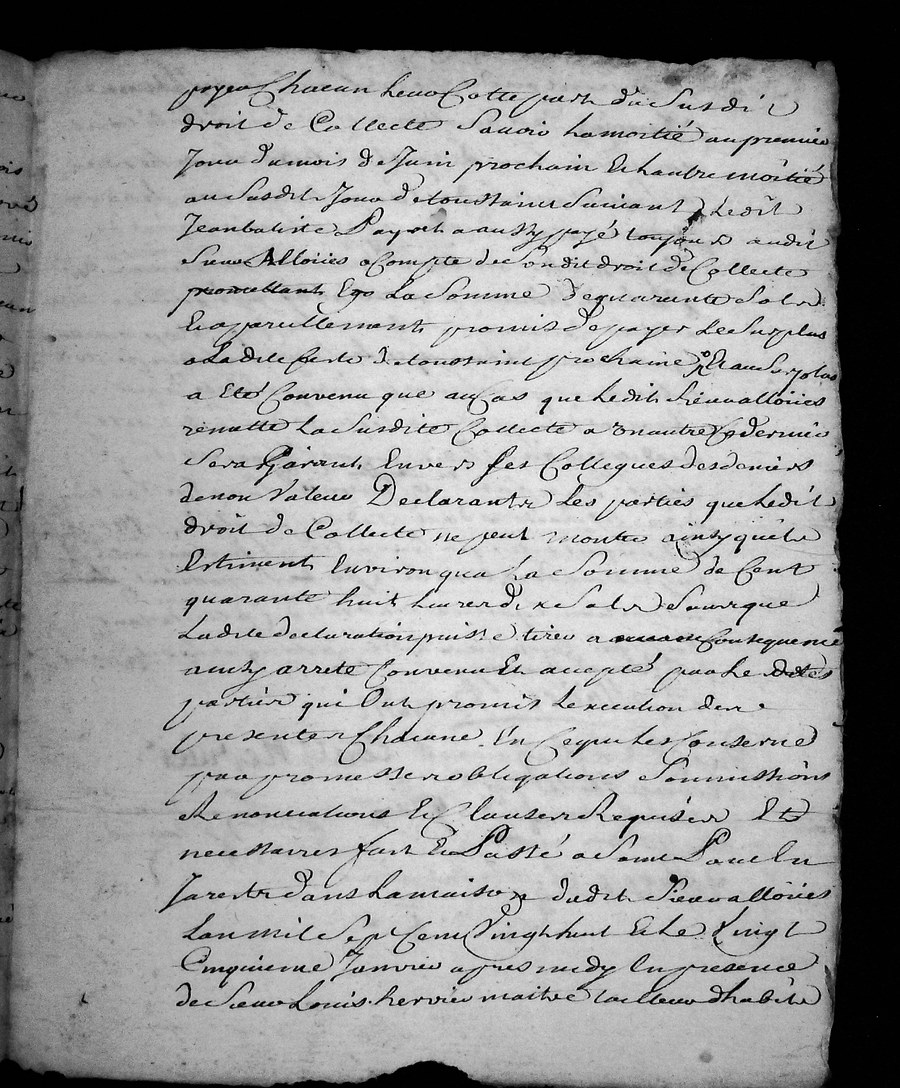 payer Chacun leur Cotte part du Susdit
droit de Collecte Sauoir la moitié au premier
Jour du mois de Juin prochain Et lautre moitié
au Susdit Jour de toussaint Suiuant, ledit
Jean batiste Payoch a aussy payé audit
Sieur Alloües a Compte de Son dit droit de Collecte
La Somme de quarante Sols
Et a pareillement promis de payer Le Surplus
a Ladite feste de toussaint prochaine Et au Surplus
a Eté Convenu que au Cas que ledit Sieur alloües
remette La Susdite Collecte a un autre Ce dernier
Sera Garant Envers Ses Collegues des deniers
de non Valeur Declarants Les parties que ledit
droit de Collecte ne peut monter ainsy quils
Estiment Environ qua La Somme de Cent
quarante huit Liures dix Sols Sans que
Ladite declaration puisse tirer a Consequence
ainsy arreté Convenu Et accepté par Le dites
parties qui Ont promis Lexecution des
presentes Chacune En Ce qui Les Conserne
par promesses obligations Soumissions
Renonciations Et Clauses Requises Et
necessaires fait Et Passé a Saint Paul En
Jarests dans La maison dudit Sieur alloües
Lan mil Sept Cent Vingt huit Et le Vingt
Cinquieme Janvier apres midy En presence
de Sieur Louis hervier maitre tailleur dhabits